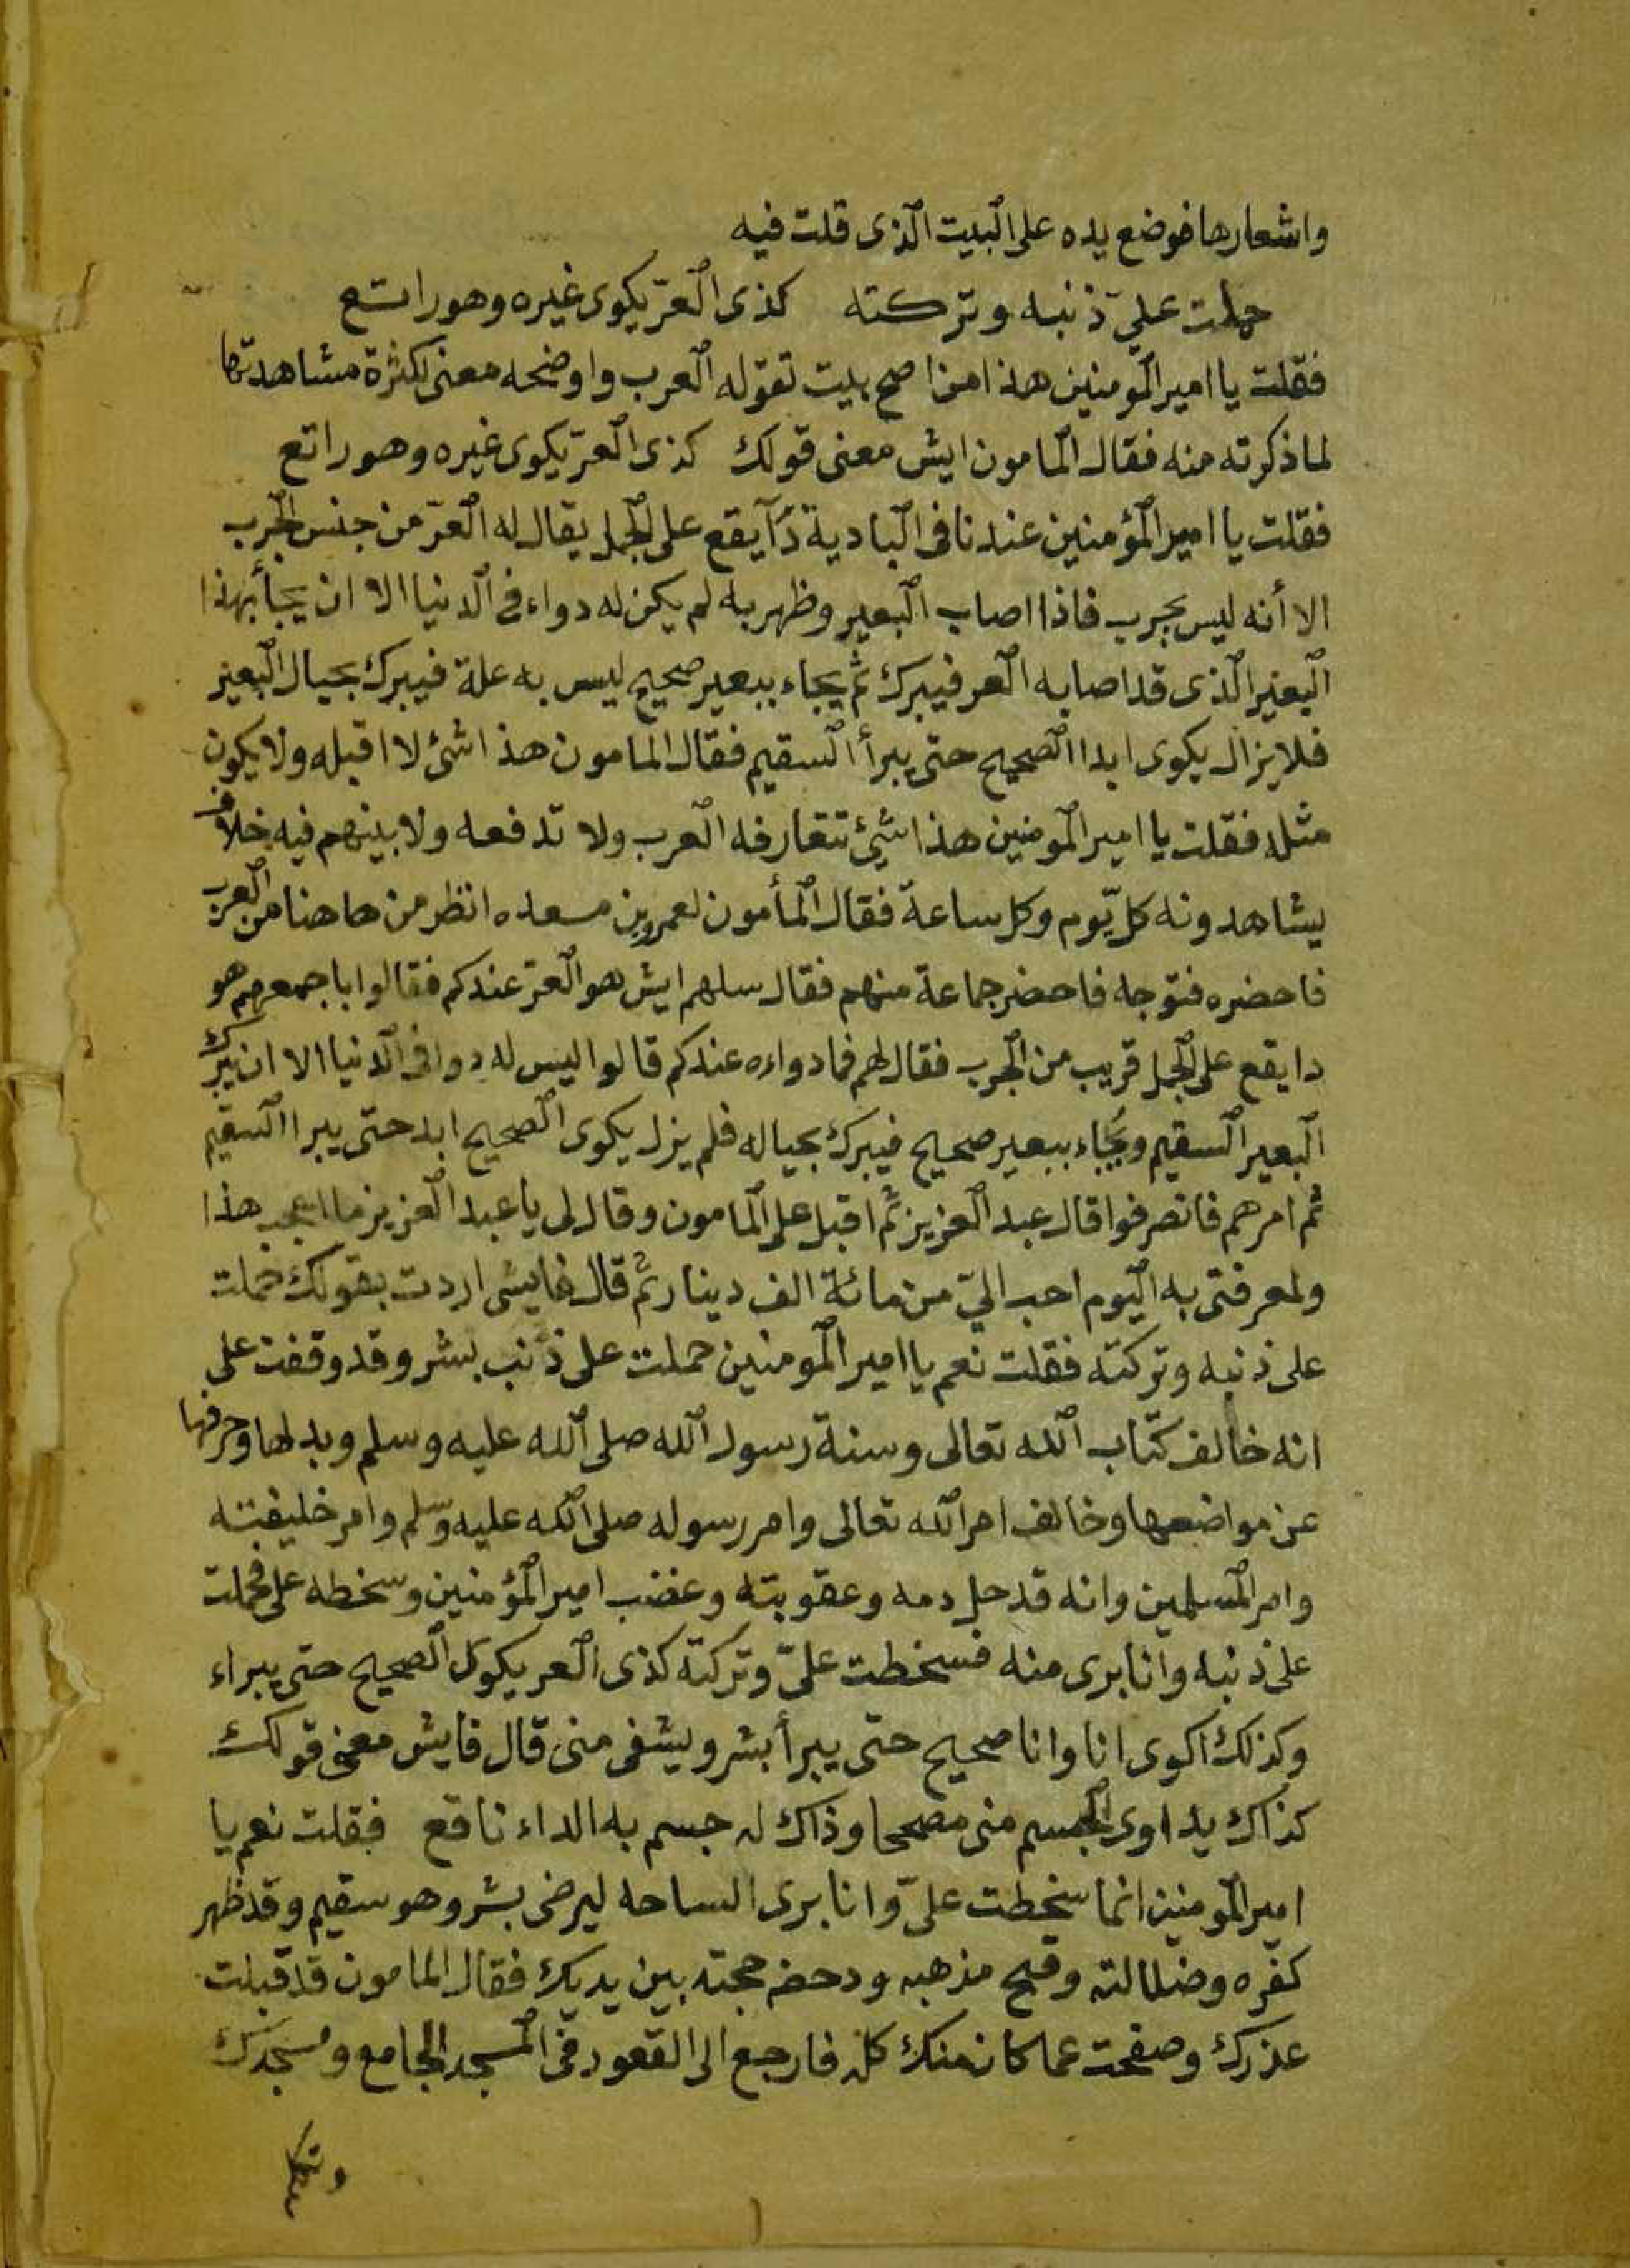 واشعارها فوضع يده على البيت الذى قلت فيه
حملت علىّ ذنبه وتركته كذى العرّ يكوى غيره وهو راتع
فقلت يا امير المومنين هذا من اصح بيت تقوله العرب واوضحه معنى لكثرة مشاهدتها
لما ذكرته منه فقال المامون ايش معنى قولك كذى العرّ يكوى غيره وهو راتع
فقلت يا امير المؤمنين عندنا فى البادية دآ يقع على الجمل يقال له العرّ من جنس الجرب
الا أنه ليس بجرب فاذا اصاب البعير وظهر به لم يكن له دواء فى الدنيا الا ان يجبأ بهذا
البعير الذى قد اصابه العر فيبرك ثم يجاء ببعير صحيح ليس به علة فيبرك بحيال البعير
فلا يزال يكوى ابدا الصحيح حتى يبرأ السقيم فقال المامون هذا شئ لا اقبله ولا يكون
مثله فقلت يا امير المومنين هذا شيئ تتعارفه العرب ولا تدفعه ولا بينهم فيه خلاف
يشاهدونه كل يوم وكل ساعة فقال المأمون لعمرو بن مسعده انظر من هاهنا من العرب
فاحضره فتوجه فاحضر جماعة منهم فقال سلهم ايش هو العرّ عندكم فقالوا باجمعهم هو
دا يقع على الجمل قريب من الجرب فقال لهم فما دواءه عندكم قالوا ليس له دوا فى الدنيا الا ان يبرك
البعير السقيم ويُجاء ببعير صحيح فيبرك بحياله فلم يزل يكوى الصحيح ابد حتى يبرا السقيم
ثم امرهم فانصرفوا قال عبد العزيز ثم اقبل على المامون وقال لى يا عبد العزيز ما اعجب هذا
ولمعرفتى به اليوم احب الىّ من مائة الف دينار ثم قال فايش اردت بقولك حملت
على ذنبه وتركته فقلت نعم يا امير المومنين حملت على ذنب بشر وقد وقفت على
انه خالف كتاب الله تعالى وسنة رسول الله صلى الله عليه وسلم وبدلها وحرفها
عن مواضعها وخالف امر الله تعالى وامر رسوله صلى الله عليه وسلم وامر خليفته
وامر المسلمين وانه قد حل دمه وعقوبته وغضب امير المؤمنين وسخطه على فحملت
على ذنبه وانا برى منه فسخطت علىّ وتركته كذى العر يكوى الصحيح حتى يبراء
وكذلك اكوى انا وانا صحيح حتى يبرأ بشر ويشفى منى قال فايش معنى قولك
كذاك يداوى الجسم منى مصححا وذاك له جسم به الداء ناقع فقلت نعم يا
امير المومنين انما سخطت علىّ وانا برى الساحه ليرضى بشر وهو سقيم وقد ظهر
كفره وضلالته وقبح مذهبه ودحض حجته بين يديك فقال المامون قد قبلت
عذرك وصفحت عما كان منك كله فارجع الى القعود فى المسجد الجامع ومسجدك